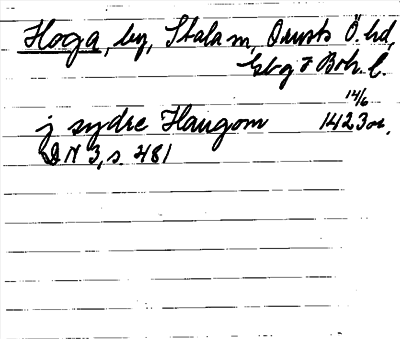 Hoga, by, Stala sn, Orusts Ö. hd,
Gbg o Boh. l.
14/6
j sydre Haugom 1423 or.
DN 3, s. 481